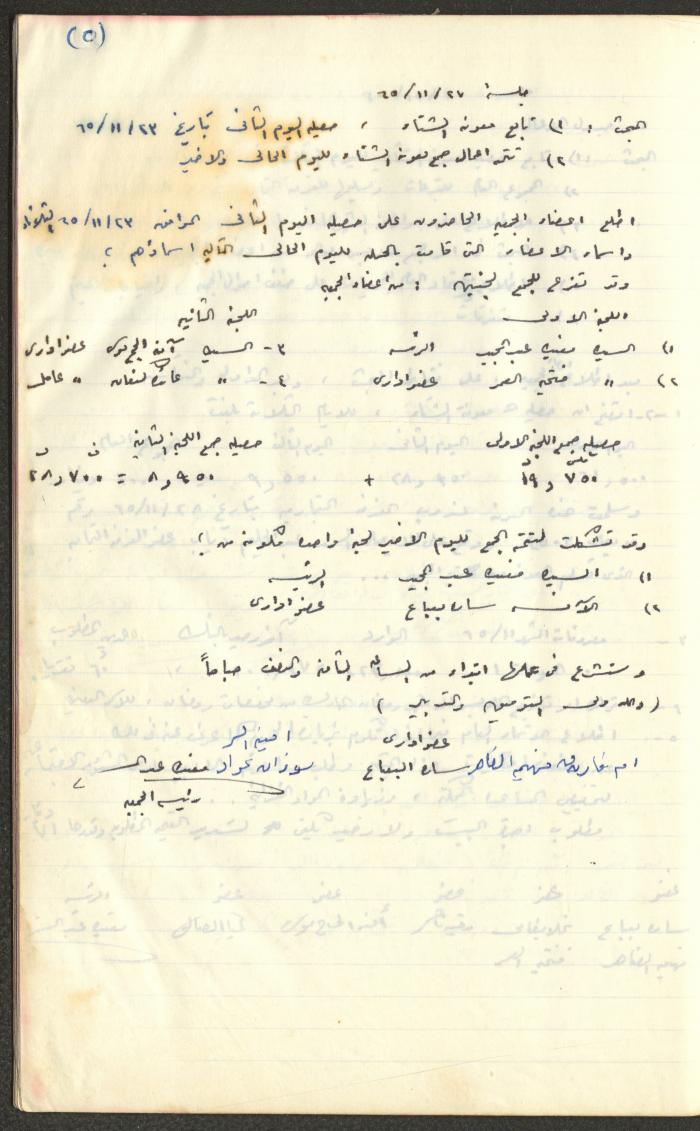 (٥)
جلسة ٢٧ / ١١ / ٦٥
البحث : ١) تابع معونة الشتاء ، حصيلة اليوم الثاني بتاريخ ٢٣ / ١١ / ٦٥
٢) تتمة اعمال جمع معونة الشتاء لليوم الحالي والاخير
اطلع اعضاء الجمعية الحاضرون على حصيلة اليوم الثاني الموافق ٢٣ / ١١ / ٦٥ الثلاثاء
واسماء الاعضاء التي قامت بالحملة لليوم الحالي التالية اسماؤهم :
وقد تفرع للجمع لجنتين : من اعضاء الجمعية
اللجنة الاولى اللجنة الثانية
١) السيدة مفيدة عبد المجيد الرئيسة ٣ - السيدة آمنة الحاج موسى عضو اداري
٢) " فتحية العمر عضو اداري ٤ - " عائدة " عامل
حصيلة جمع اللجنة الاولى حصيلة جمع اللجنة الثانية
٧٥٠ و ١٩ + ٩٥٠ و ٨ = ٧٠٠ و ٢٨
وقد تشكلت لتتمة الجمع لليوم الاخير لجنة واحدة مكونة من :
١) السيدة مفيدة عبد المجيد الرئيسة
٢) الآنسة سارة بعباع عضو اداري
وستشرع في عملها ابتداء من الساعة الثامنة والنصف صباحاً
( والله ولي التوفيق والتدبير )
عضو اداري امينة السر
ام فاروق فهيمة الظاهر سارة البعباع سوزان عواد مفيدة عبد
رئيسة الجمعية